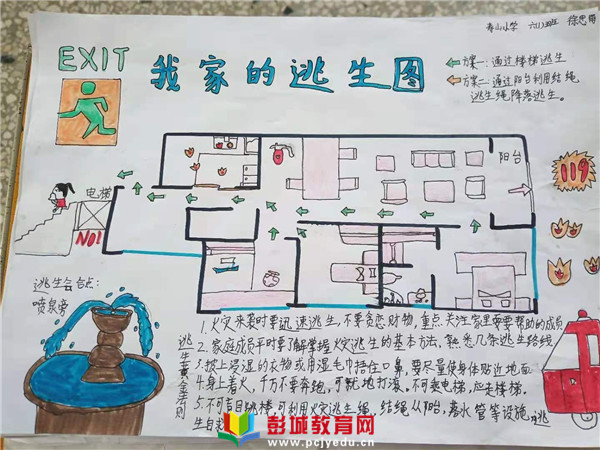 寿山小学 六(1)班 徐思雨
EXIT
我家的逃生图
方案一:通过楼梯逃生
方案二:通过阳台利用结绳
逃生绳降落逃生。
阳台
119
电梯
NO!
逃生集合点:
喷泉旁
逃生黄金法则
1.火灾来袭时要迅速逃生,不要贪恋财物,重点关注家里需要帮助的成员
2.家庭成员平时要了解掌握火灾逃生的基本方法,熟悉几条逃生路线
3.披上浸湿的衣物或用湿毛巾捂住口鼻,要尽量使身体贴近地面
4.身上着火,千万不要奔跑,可就地打滚,不可乘电梯,应走楼梯。
5.不可盲目跳楼,可利用火灾逃生绳,结绳从阳台,落水管等设施逃
生自救
彭城教育网
www.pcjyedu.cn